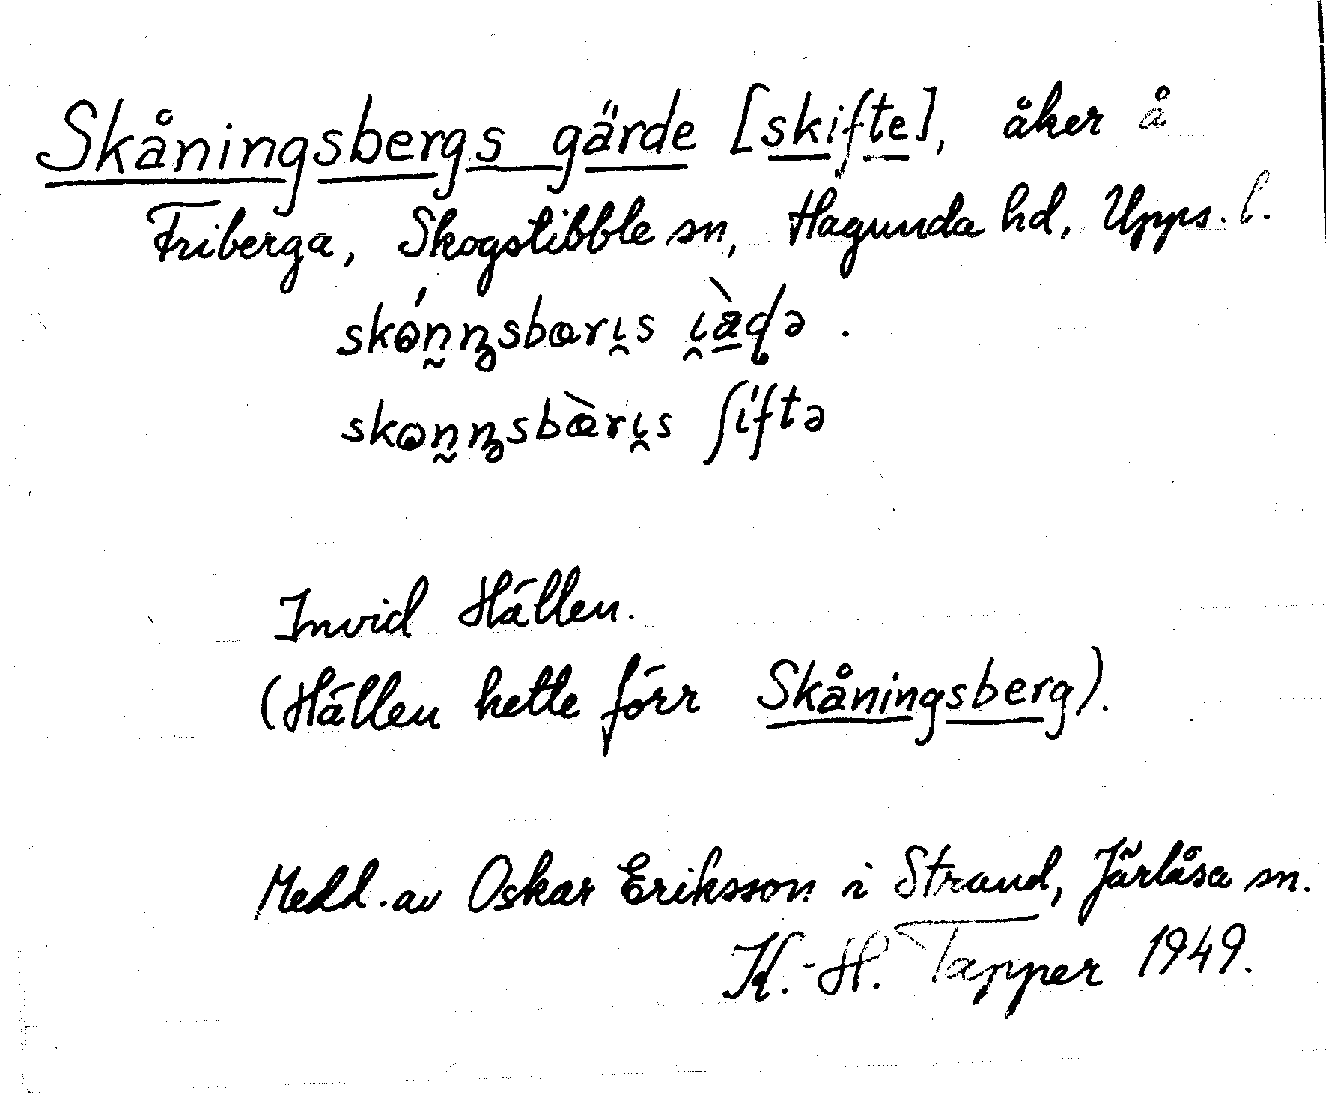 Skåningsbergs gärde [skifte], åker å
Friberga, Skogstibble sn, Hagunda hd, Upps. l.
skɵ́n̰n̡sbɑrι̯s ι̯æ̀ɖə.
skɵn̰n̡sbæ̀rι̯s ʃíftə
Invid Hällen.
(Hällen hette förr Skåningsberg).
Medd. av Oskar Eriksson i Strand, Järlåsa sn.
K.-H. Tapper 1949.